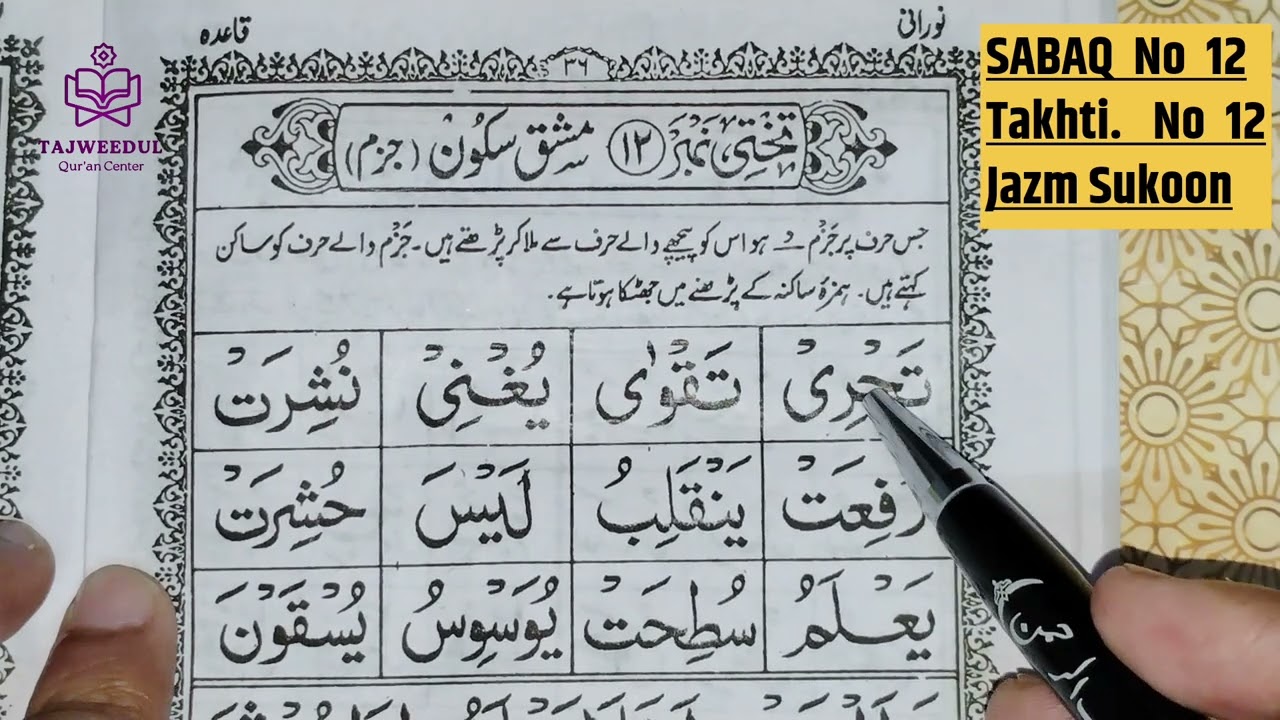 نورانی
قاعدہ
۳۶
تختی نمبر ۱۲ مشق سکون (جزم)
جس حرف پر جَزْم ـْ ہو اس کو پیچھے والے حرف سے ملا کر پڑھتے ہیں۔ جَزْم والے حرف کو ساکن
کہتے ہیں۔ ہمزۂ ساکنہ کے پڑھنے میں جھٹکا ہوتا ہے۔
تَجْرِیْ تَقْوٰی یُغْنِیْ نُشِرَتْ
رُفِعَتْ یَنْقَلِبُ لَیْسَ حُشِرَتْ
یَعْلَمُ سُطِحَتْ یُوَسْوِسُ یُسْقَوْنَ
SABAQ No 12
Takhti. No 12
Jazm Sukoon
TAJWEEDUL
Qur'an Center